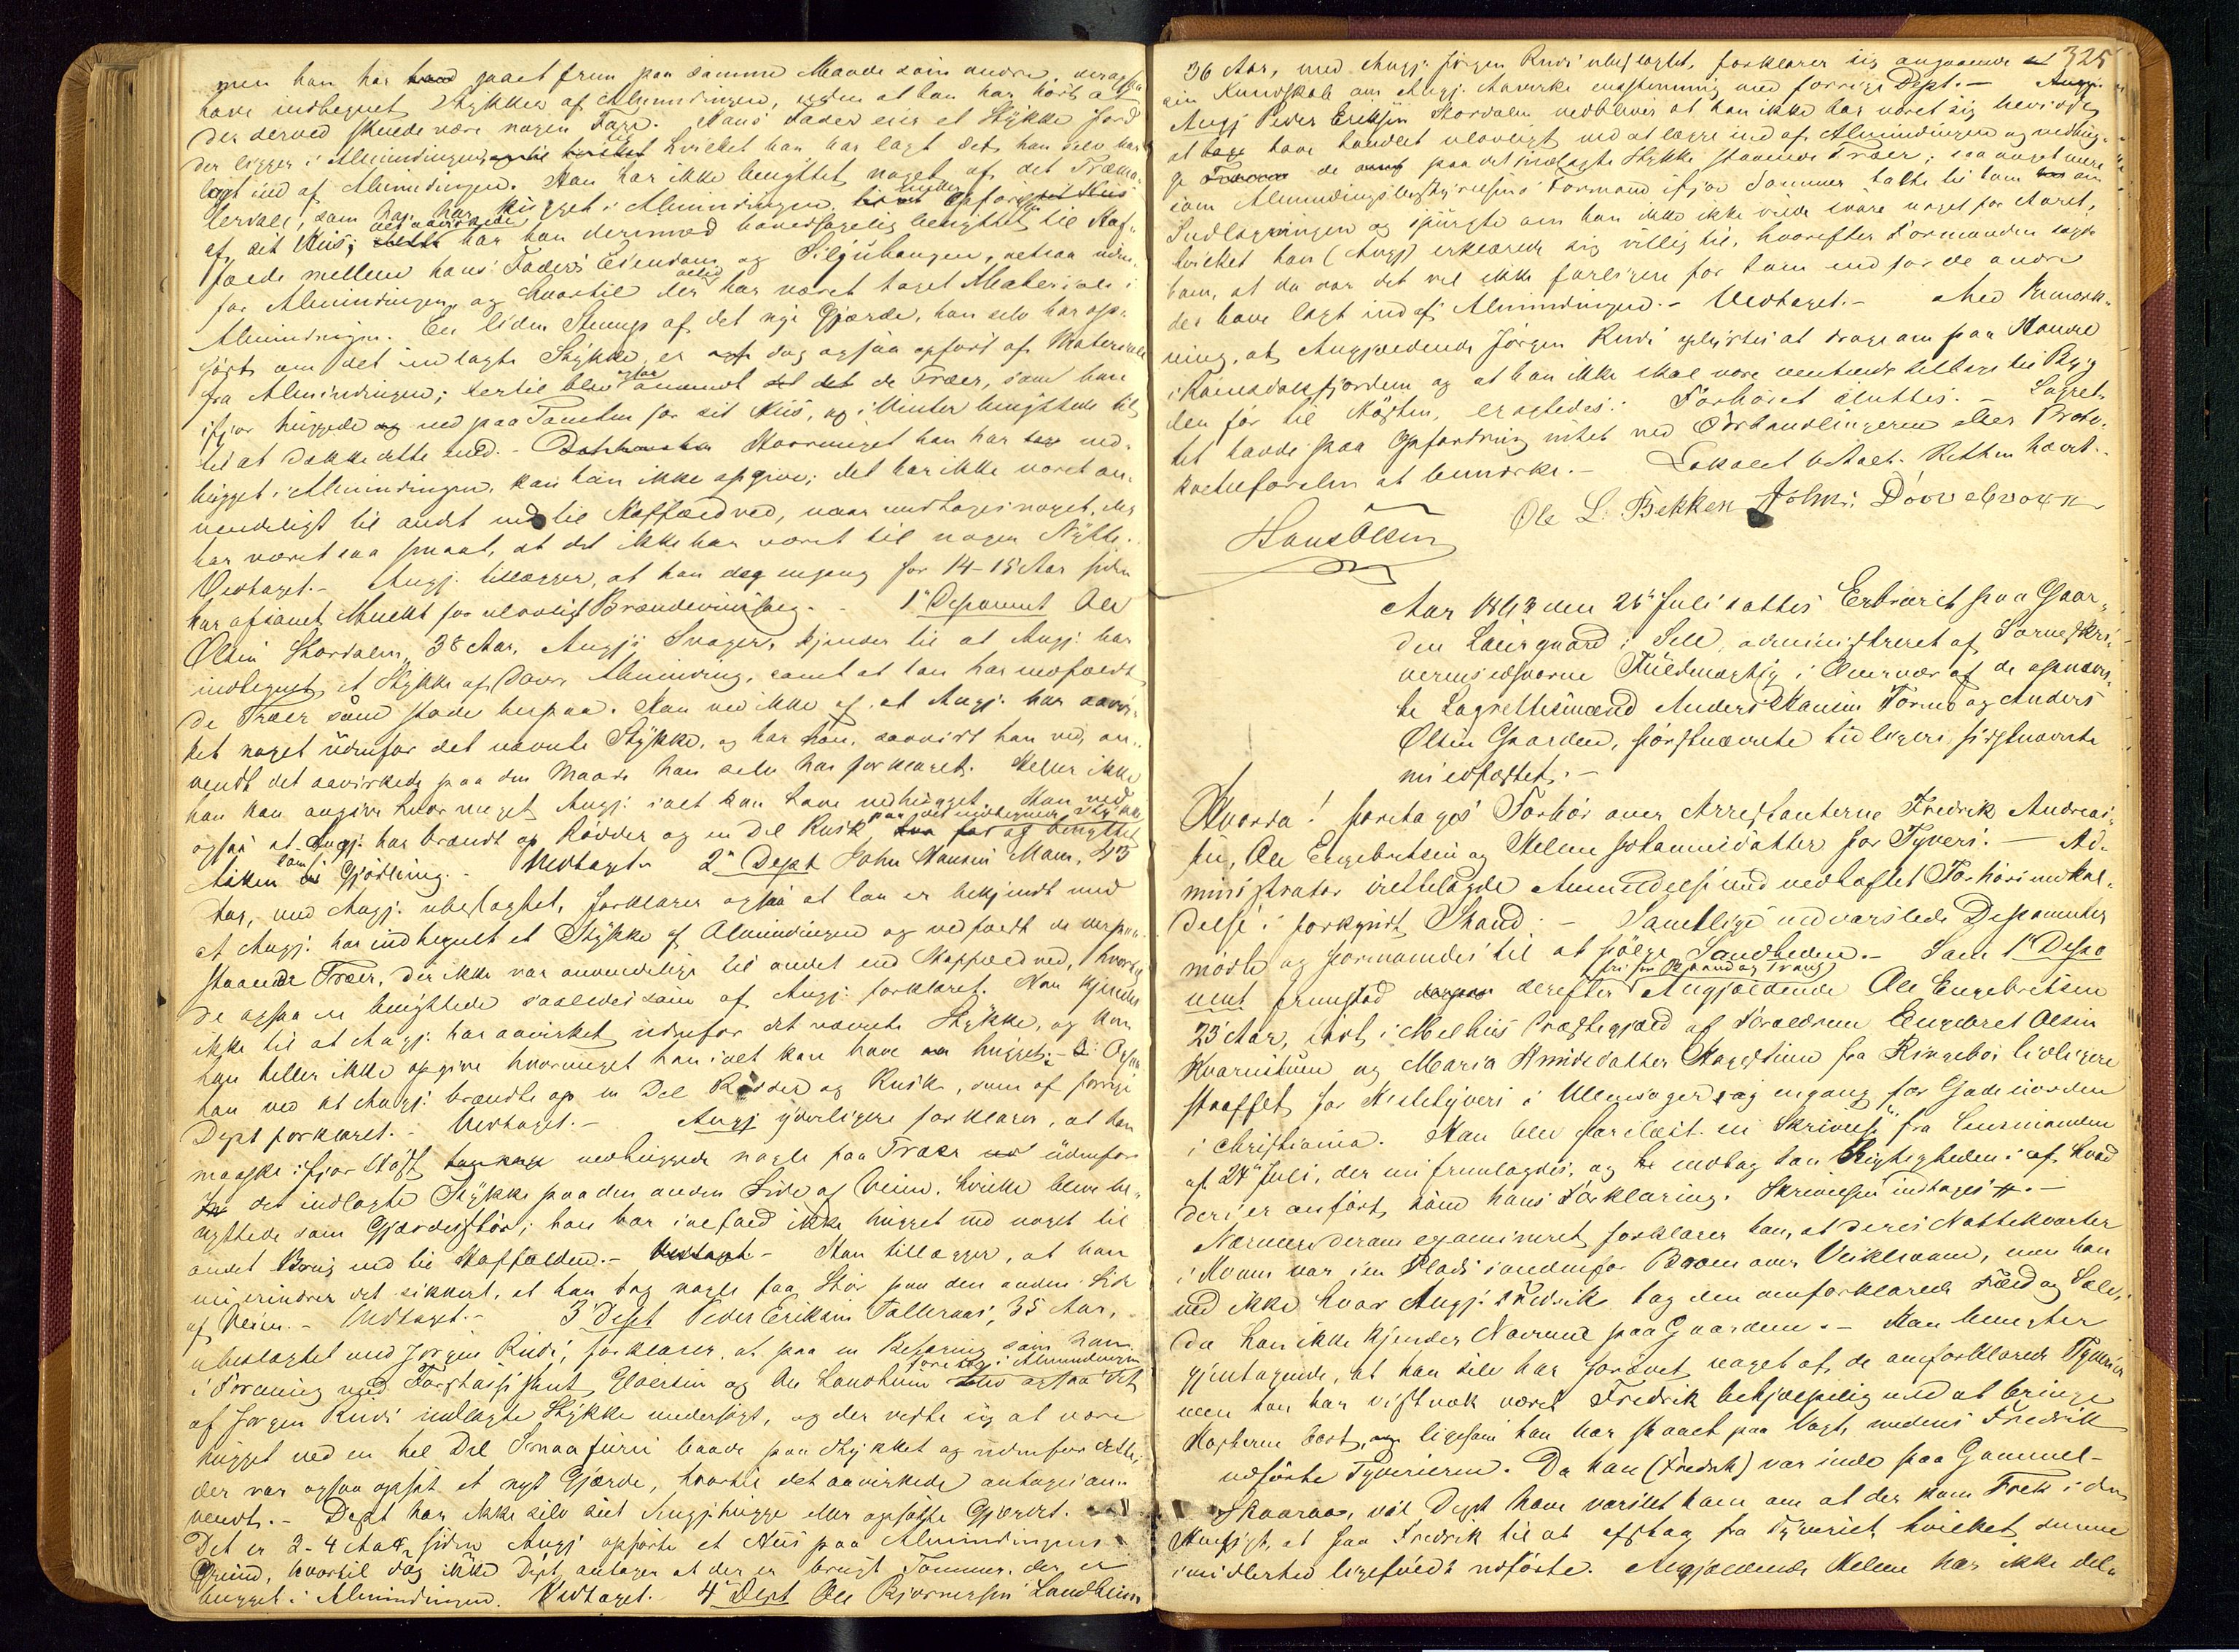 men han har gaaet frem paa samme Maade som andre, der ogsaa
have indhegnet Stykker af Almindingen, uden at han har hørt at
der derved skulde være nogen Fare. Hans Fader eier et Stykke Jord
der ligger i Almindingen, til hvilket han har lagt det, han selv har
lagt ind af Almindingen. Han har ikke benyttet noget af det Træma-
teriale, som han har hugget i Almindingen, til Opførelse
af sit Huus; det aavirkede har han derimod hovedsagelig benyttet til Skaf-
foeld mellem hans Faders Eiendom og Siljuhaugen, altsaa uden-
for Almindingen, og hvortil der altid har været taget Materiale i
Almindingen. En liden Stump af det nye Gjærde, han selv har op-
ført om det indlagte Stykke, er dog ogsaa opført af Materiale
fra Almindingen; hertil blev ogsaa anvendt de Træer, som han
ifjor huggede ned paa Tomten for sit Huus, og i Vinter benyttede til
til at dække dette med. - Hvormeget han har ned-
hugget i Almindingen, kan han ikke opgive; det har ikke været an-
vendeligt til andet end til Skaffoeldved, naar undtages noget, der
har været saa smaat, at det ikke har været til nogen Nytte. -
Vedtaget. - Angj. tillægger, at han engang for 14-15 Aar siden
har afsonet Mulkt for ulovligt Brændeviinssalg. - 1ste Deponent Ole
Olsen Stordalen, 38 Aar, Angjs Svoger, kjender til at Angj. har
indhegnet et Stykke af Dovre Alminding, samt at han har nedfældt
de Træer som stode herpaa. Han ved ikke af, at Angj. har aavir-
ket noget udenfor det nævnte Stykke, og har han, saavidt han ved, an-
vendt det aavirkede paa den Maade han selv har forklaret. Heller ikke
han kan angive hvor meget Angj. i alt kan have nedhugget. Han ved
ogsaa at Angj. har brændt op Rødder og en Del Rusk paa det indhegnede Stykke og benyttet
Asken som Gjødning. - Vedtaget. 2den Dept John Hansen Moen, 43
Aar, med Angj. ubeslægtet, forklarer ogsaa at han er bekjendt med
at Angj. har indhegnet et Stykke af Almindingen og nedfældt de derpaa
staaende Træer, der ikke var anvendelige til andet end Skaffoeldved, hvortil
de ogsaa ere benyttede saaledes som af Angj. forklaret. Han kjender
ikke til at Angj. har aavirket udenfor det nævnte Stykke, og kan
han heller ikke opgive hvormeget han i alt kan have hugget. - Ogsaa
han ved at Angj. brændte op en Del Rødder og Rusk, som af forrige
Dept forklaret. - Vedtaget. - Angj yderligere forklarer, at han
maaske ifjor Høst nedhuggede nogle faa Træer udenfor
det indlagte Stykke paa den anden Side af Veien, hvilke bleve be-
nyttede som Gjærdestør; han har ialfald ikke hugget ned noget til
andet Brug end til Skaffolden. - Han tillægger, at han
nu erindrer det sikkert, at han tog nogle faa Stør paa den anden Side
af Veien. - Vedtaget. - 3die Dept Peder Eriksen Talleraas, 35 Aar,
ubeslægtet med Jørgen Rudi, forklarer, at paa en Befaring som han
i Forening med Forstassistent Gløersen og Ole Landheim foretog i Almindingen blev ogsaa det
af Jørgen Rudi indlagte Stykke undersøgt, og der viste sig at være
hugget ned en hel Del Smaafuru baade paa Stykket og udenfor dette,
der var ogsaa opsat et nyt Gjærde, hvortil det aavirkede antages an-
vendt. - Dept har ikke selv seet Angj hugge eller opsætte Gjærdet.
Det er 3-4 Aar siden Angj opførte et Huus paa Almindingens
Grund, hvortil dog ikke Dept antager at der er brugt Tømmer, der er
hugget i Almindingen. Vedtaget. 4de Dept Ole Bjørnersen Landheim
325
36 Aar, med Angj. Jørgen Rudi ubeslægtet, forklarer sig angaaende
sin Kundskab om Angj. Aavirke enstemmig med forrige Dept. -
Angj Peder Eriksen Stordalen vedbliver at han ikke har været sig bevidst
at have handlet ulovligt ved at lægge ind af Almindingen og nedhug-
ge de paa det indlagte Stykke staaende Træer; saa meget mere
som Almindingsbestyrelsens Formand ifjor Sommer talte til ham om
Indlægningen og spurgte om han ikke vilde svare noget for Aaret,
hvilket han (Angj) erklærede sig villig til, hvorefter Formanden sagde
ham, at da var det vel ikke farligere for ham end for de andre
der have lagt ind af Almindingen. - Vedtaget. - Med Bemærk-
ning, at Angjældende Jørgen Rudi oplystes at drage om paa Handel
i Romsdalsfjorden og at han ikke skal være ventende tilbage til Byg-
den før til Høsten, eragtedes: Forhøret sluttes. - Lagret-
tet havde paa Opfordring intet ved Forhandlingerne eller Proto-
kolførelsen at bemærke. - Lokalet betalt. Retten hævet. -
Hans Olsen Ole L. Bekken Johns. Dovreløkken
Aar 1863 den 25de Juli sattes Extraret paa Gaar-
den Laurgaard i Sell, administreret af Sorenskri-
verens edsvorne Fuldmægtig i Overvær af de opnævn-
te Lagrettesmænd Anders Hansen Formo og Anders
Olsen Gaarden, førstnævnte tidligere, sidstnævnte
nu edfæstet. -
Hvorda! foretages Forhør over Arrestanterne Fredrik Andreas-
sen, Ole Engebretsen og Helene Johannesdatter for Tyveri. - Ad-
ministrator irettelagde Anmeldelse med vedhæftet Forhørsindkal-
delse i forkyndt Stand. - Samtlige indvarslede Deponenter
mødte og formanedes til at følge Sandheden. - Som 1ste Depo
nent fremstod derefter (fri for Baand og Tvang) Angjældende Ole Engebretsen
23 Aar, født i Melhus Præstegjæld af Forældrene Engebret Olsen
Kvernstuen og Maria Amundsdatter Hagestuen fra Ringebo, tidligere
straffet for Hestetyveri i Ullensager, og engang for Gadeuorden
i Christiania. Han blev forelæst en Skrivelse fra Lensmanden
af 24de Juli, der nu fremlagdes, og vedtog han Rigtigheden af hvad
deri er anført, som hans Forklaring. Skrivelsen indtages #. -
Nærmere derom examineret forklarer han, at deres Nattekvarter
i Kvam var i en Plads indenfor Broen over Veikleaaen, men han
ved ikke hvor Angj. Fredrik tog den omforklarede Fæld og Sæle,
da han ikke kjender Navnet paa Gaardene. - Han benegter
gjentagende, at han selv har forøvet noget af de omforklarede Tyverier
men han har vistnok været Fredrik behjælpelig med at bringe
Kosterne bort, ligesom han har staaet paa Vagt, medens Fredrik
udførte Tyverierne. Da han (Fredrik) var inde paa Gammel-
Skaaraa, vil Dept have varslet ham om at der kom Folk i den
Hensigt, at faa Fredrik til at afstaa fra Tyveriet, hvilket denne
imidlertid ligefuldt udførte. Angjældende Helene har ikke del-